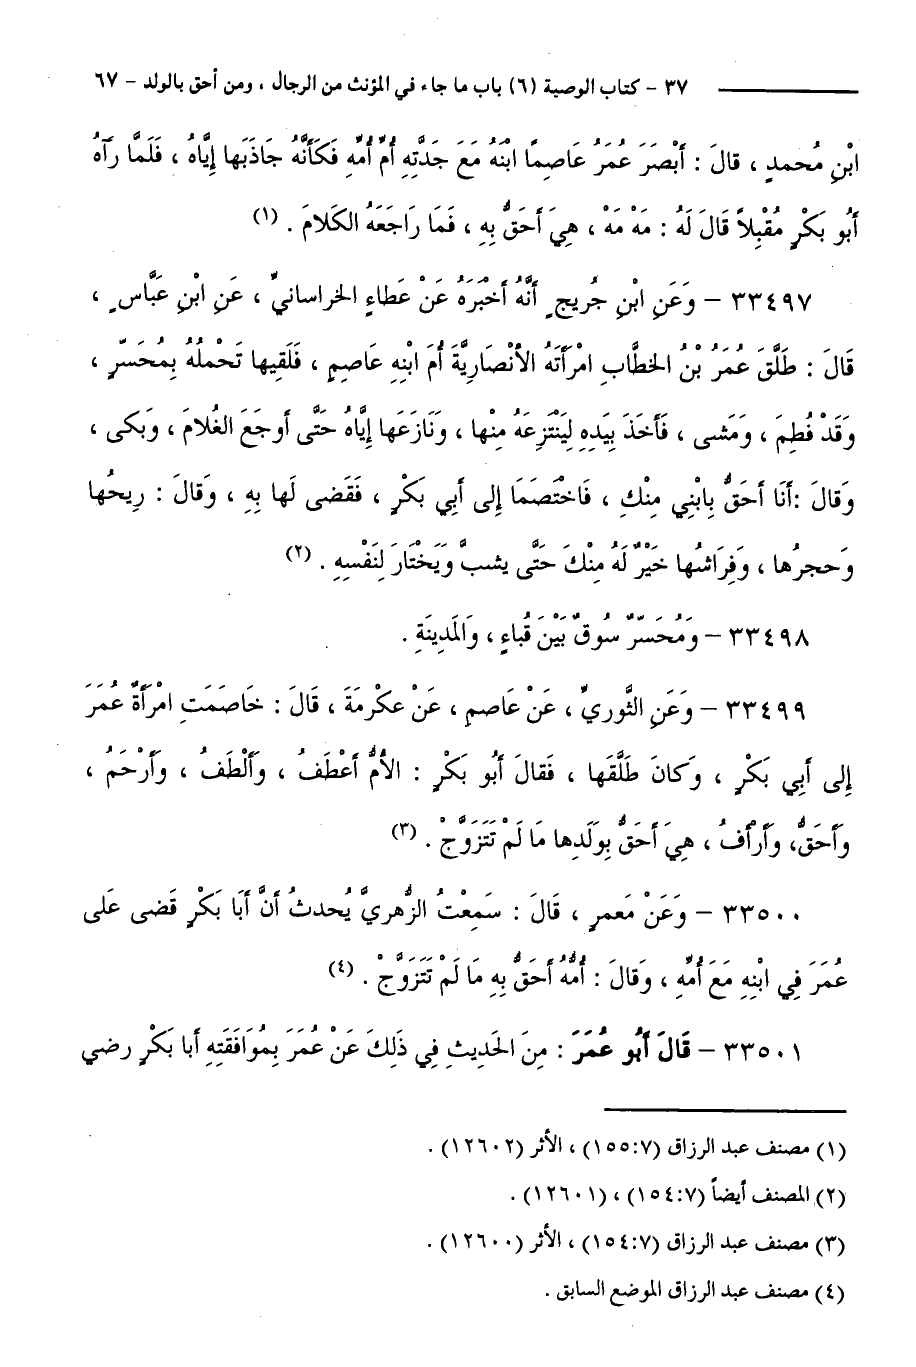 ٣٧ - كتاب الوصية (٦) باب ما جاء في المؤنث من الرجال ، ومن أحق بالولد - ٦٧
ابْنِ مُحمدٍ ، قالَ : أَبْصَرَ عُمَرُ عَاصِمًا ابْنَهُ مَعَ جَدَّتِهِ أُمِّ أُمِّهِ فَكَأَنَّهُ جَاذَبَها إِيَّاهُ ، فَلَمَّا رَآهُ
أَبُو بَكْرٍ مُقْبِلاً قَالَ لَهُ : مَهْ مَهْ ، هِيَ أَحَقُّ بِهِ ، فَمَا رَاجَعَهُ الكَلامَ . (١)
٣٣٤٩٧ - وَعَنِ ابْنِ جُريجٍ أَنَّهُ أَخْبَرَهُ عَنْ عَطاءٍ الخراسانيِّ ، عَنِ ابْنِ عَبَّاسٍ ،
قَالَ : طَلَّقَ عُمَرُ بْنُ الخطَّابِ امْرَأَتَهُ الأَنْصَارِيَّةَ أُمَ ابْنِهِ عَاصِمٍ ، فَلَقِيها تَحْملُهُ بِمُحَسِّرٍ ،
وَقَدْ فُطِمَ ، وَمَشى ، فَأَخَذَ بِيَدِهِ لِيَنْتَزِعَهُ مِنْها ، وَنَازَعَها إِيَّاهُ حَتَّى أَوجَعَ الغُلامَ ، وَبَكى ،
وَقالَ :أَنَا أَحَقُّ بِابْنِي مِنْكِ ، فَاخْتَصَمَا إِلى أَبِي بَكْرٍ ، فَقَضى لَها بِهِ ، وَقالَ : رِيحُها
وَحجرُها ، وَفِرَاشُها خَيْرٌ لَهُ مِنْكَ حَتَّى يشبَّ وَيَخْتَارَ لِنَفْسِهِ . (٢)
٣٣٤٩٨ - وَمُحَسِّرٌ سُوقٌ بَيْنَ قُباءٍ ، وَالمَدِينَةِ .
٣٣٤٩٩ - وَعَنِ الثَّوريِّ ، عَنْ عَاصمٍ ، عَنْ عكْرِمَةَ ، قَالَ : خَاصَمَتِ امْرَأَةُ عُمَرَ
إِلى أَبِي بَكْرٍ ، وَكانَ طَلَّقَها ، فَقالَ أَبُو بَكْرٍ : الأُمُّ أَعْطَفُ ، وَأَلْطَفُ ، وَأَرْحَمُ ،
وَأَحَقُّ، وَأَرْأَفُ ، هِيَ أَحَقُّ بِوَلَدِها مَا لَمْ تَتَزَوَّجْ . (٣)
٣٣٥٠٠ - وَعَنْ مَعمرٍ ، قَالَ : سَمِعْتُ الزُّهريَّ يُحدثُ أَنَّ أَبَا بَكْرٍ قَضى عَلى
عُمَرَ فِي ابْنِهِ مَعَ أُمِّهِ ، وَقالَ : أُمُّهُ أَحَقُّ بِهِ مَا لَمْ تَتَزَوَّجْ . (٤)
٣٣٥٠١ - قَالَ أَبُو عُمَرَ : مِنَ الحَدِيثِ فِي ذَلِكَ عَنْ عُمَرَ بِمُوَافَقَتِهِ أَبا بَكْرٍ رضي
(١) مصنف عبد الرزاق (١٥٥:٧) ، الأثر (١٢٦٠٢) .
(٢) المصنف أيضاً (١٥٤:٧) ، (١٢٦٠١) .
(٣) مصنف عبد الرزاق (١٥٤:٧) ، الأثر (١٢٦٠٠) .
(٤) مصنف عبد الرزاق الموضع السابق .